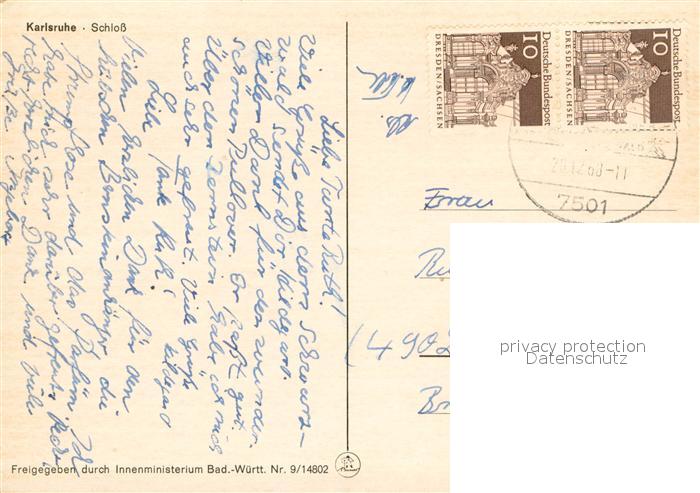 Karlsruhe · Schloß
Liebe Tante Ruth!
Viele Grüße aus dem Schwarz-
wald sendet Dir Hildgard.
Vielen Dank für den wunder
schönen Pullover. Er paßt gut.
Über den Bernstein habe ich mich
auch sehr gefreut. Viele Grüße
Hildgard
Liebe Tante Ruth!
Vielen herzlichen Dank für den
hübschen Bernsteinanhänger, die
Strumpfhose und das Parfüm. Ich
habe mich sehr darüber gefreut.
recht herzlichen Dank und viele
Grüße
Freigegeben durch Innenministerium Bad.-Württ. Nr. 9/14802
10
Deutsche Bundespost
DRESDEN/SACHSEN
10
Deutsche Bundespost
DRESDEN/SACHSEN
20.12.68-11
7501
Frau
Ru
(490
Br
privacy protection
Datenschutz